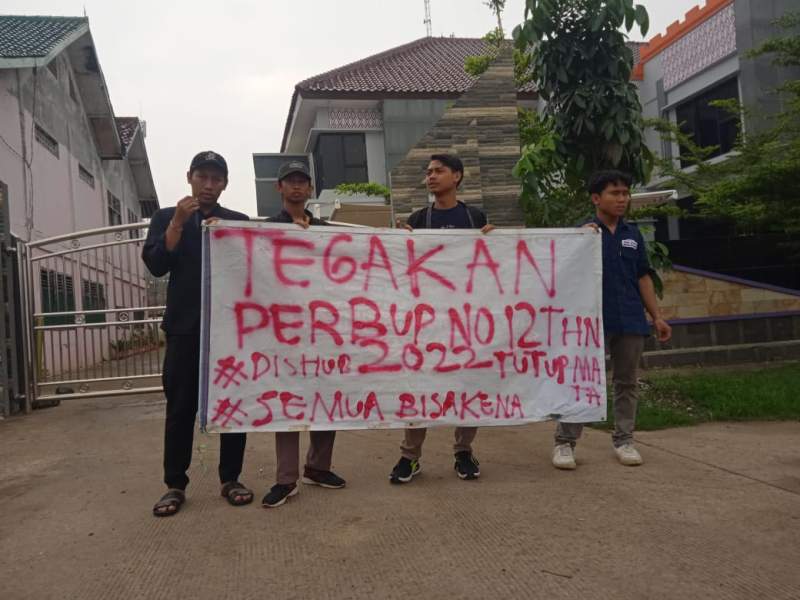 TEGAKAN
PERBUP NO 12 THN
#DISHUB 2022 TUTUP MA
TA
#SEMUA BISA KENA